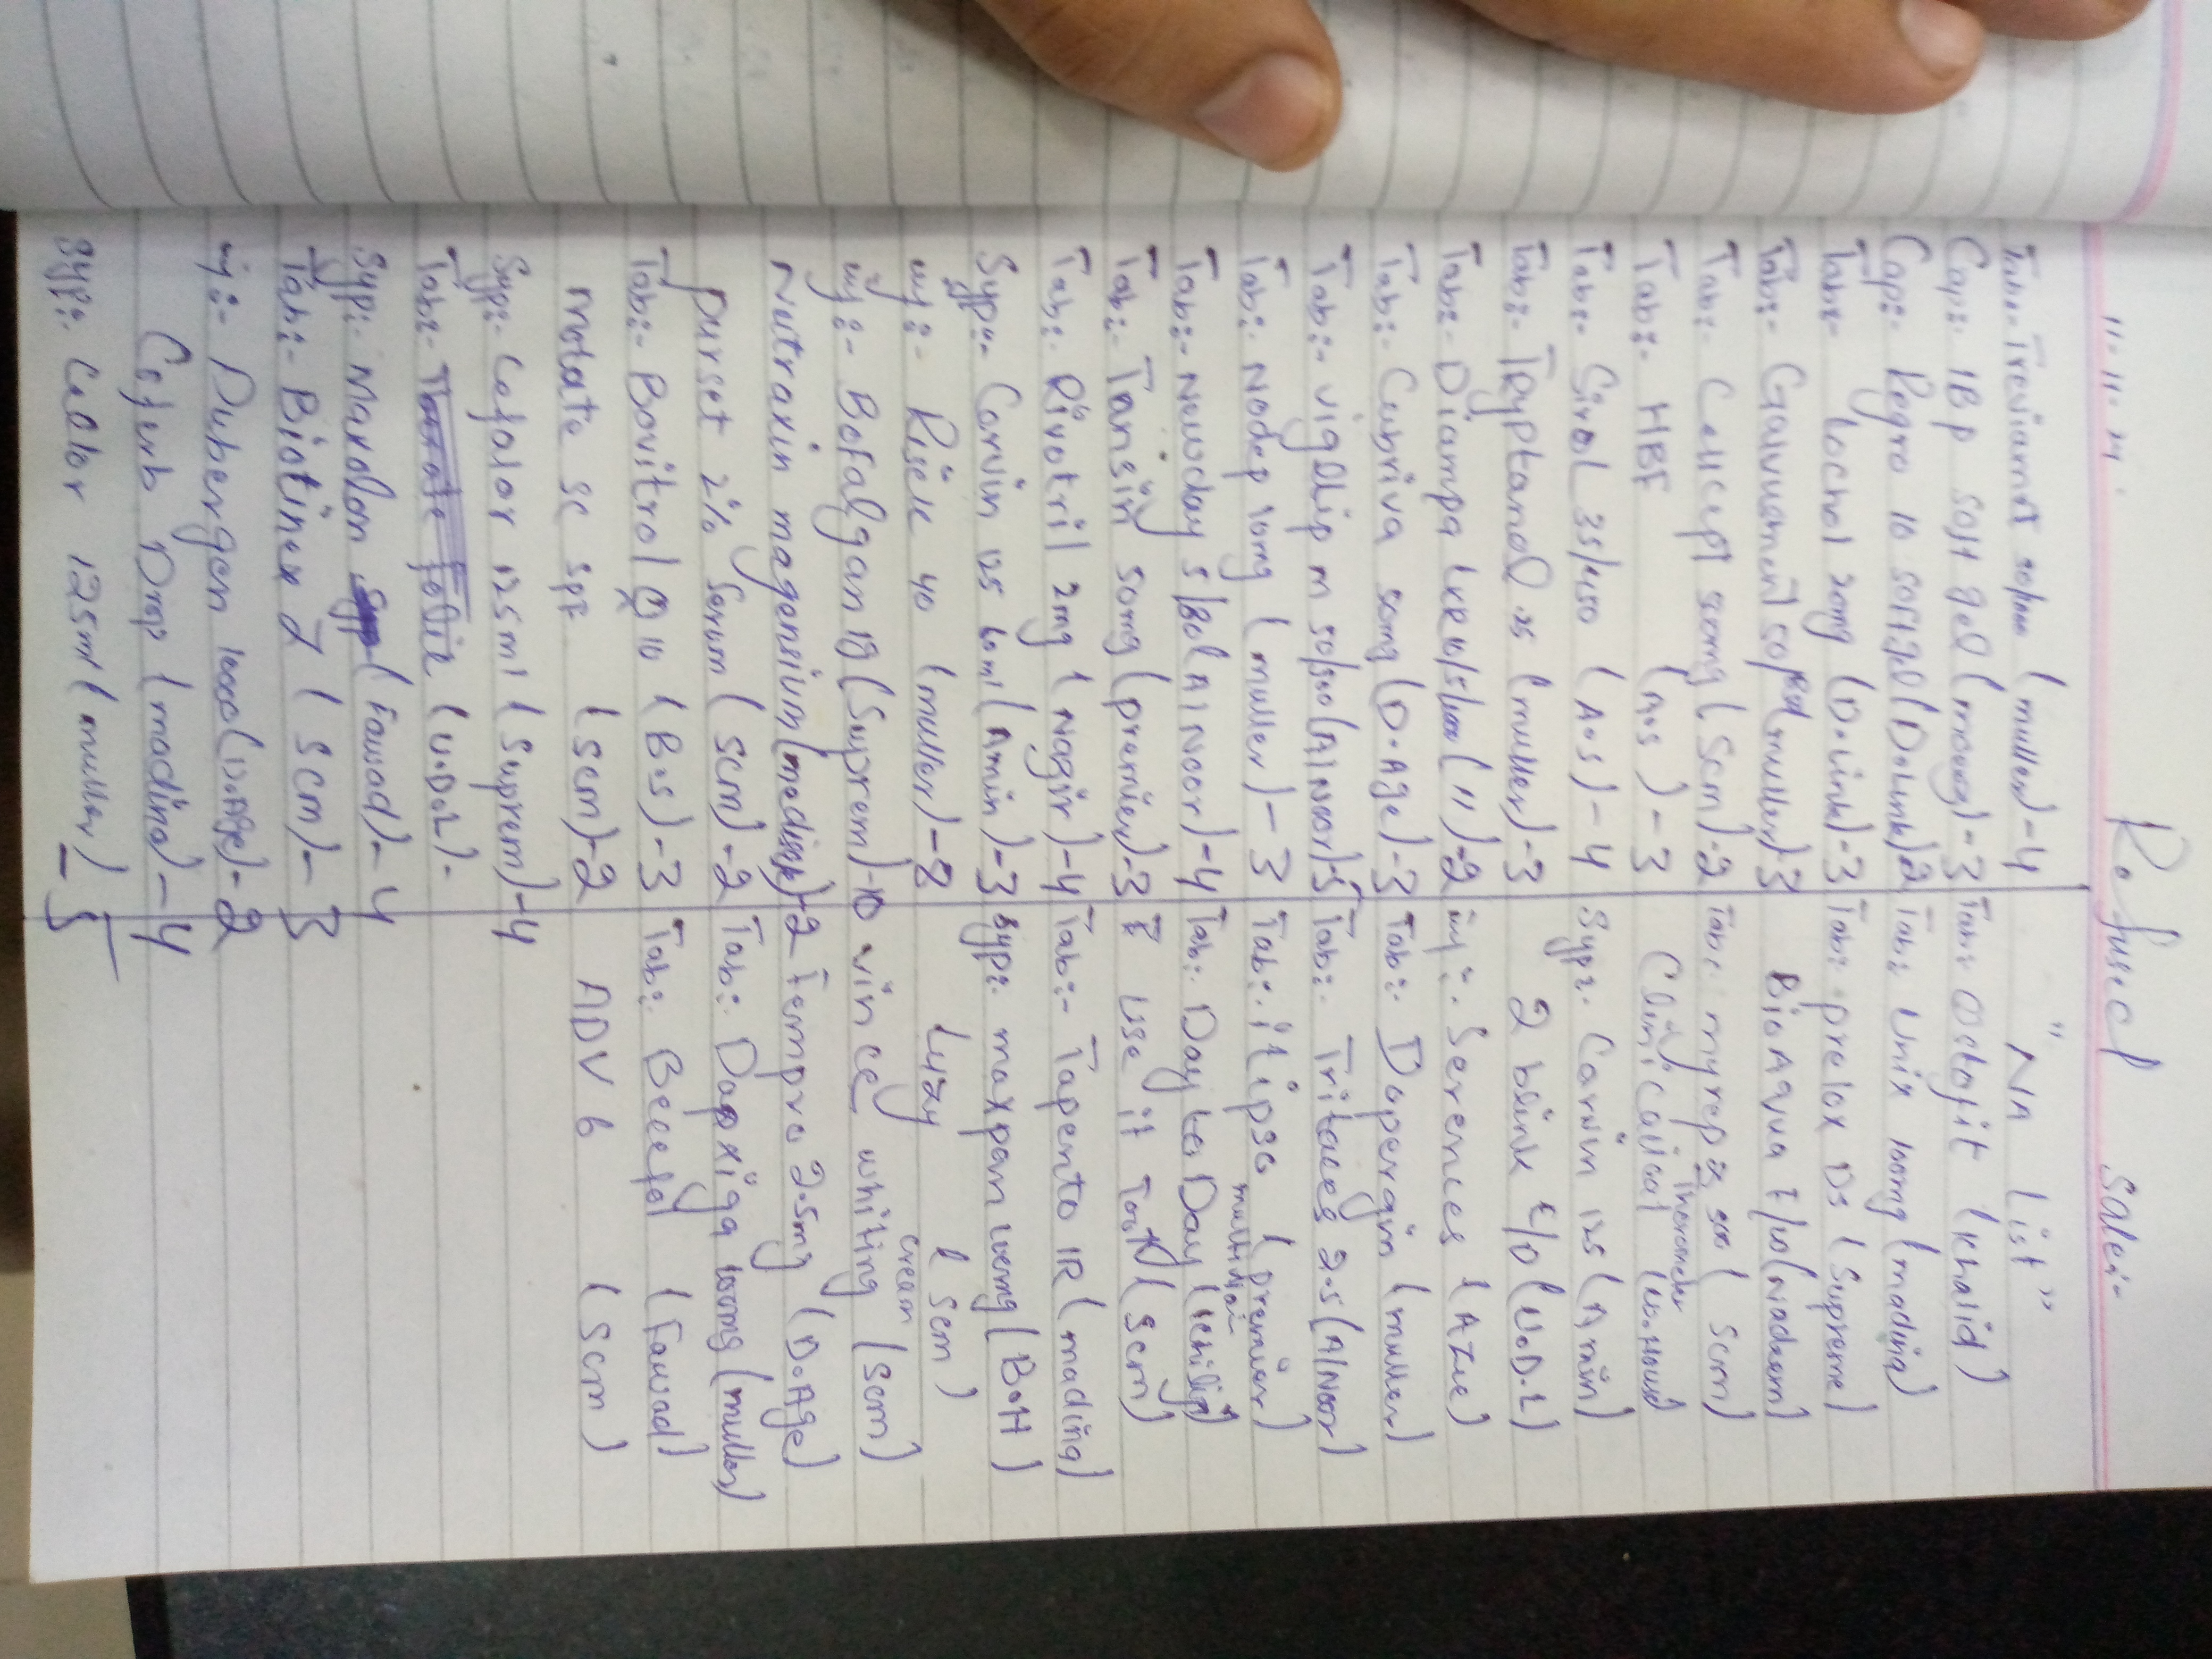 11-11-24
Refused Sales:-
Tab:- Treviamet 50/ (muller)-4
Cap:- IBP soft gel ( )-3
Cap:- Regro 10 softgel (D.Link)-2
Tab:- Lochol 20mg (D.Link)-3
Tab:- Galvumet 50/ (muller)-3
Tab:- Cellcept 500mg (Scm)-2
Tab:- HBF (A.S)-3
Tab:- Sinol 35/450 (A.S)-4
Tab:- Tryptanol 25 (muller)-3
Tab:- Diampa LXR 10/5/1000 (11)-2
Tab:- Cubriva 50mg (D.Age)-3
Tab:- viglip m 50/500 (AlNoor)-5
Tab:- Nodep 10mg (muller)-3
Tab:- Newday 5/80 (AlNoor)-4
Tab:- Transin 50mg (premier)-3
Tab:- Rivotril 2mg (Nagir)-4
Syp:- Corvin 125 60ml (Amin)-3
inj:- Risek 40 (muller)-8
inj:- Bofalgan 1g (Suprem)-10
Nutraxin magensium (medina)-2
purset 2% Serum (Scm)-2
Tab:- Bovitrol Q 10 (B.S)-3
molate sc SPF (Scm)-2
Syp:- Cefalor 125ml (Suprem)-4
Tab:- (U.D.L)-
Syp:- Maxolon (Fawad)-4
Tab:- Biotinex (Scm)-3
inj:- Dubergen 1000 (D.Age)-2
Cefurb Drop (madina)-4
Syp:- Calbor 125ml (muller)-5
"NA List"
Tab:- Osteofit (Khalid)
Tab:- Unix 100mg (madina)
Tab:- prelox DS (Supreme)
BioAqua 7/10 (Nadeem)
Tab:- myrep 500 (Scm)
Clinical Thermometer (W.House)
Syp:- Carvin 125 (Amin)
2 blink E/D (U.D.L)
inj:- Serences (AZee)
Tab:- Dopergin (muller)
Tab:- Tritaces 2.5 (AlNoor)
Tab:- itip30 (premier)
Tab:- Day to Day multivitamin
E use it Tooth (Scm)
Tab:- Tapento IR (madina)
Syp:- maxpan 100mg (B.H)
Luxy (Scm)
vince whiting cream (Scm)
Tempro 2.5mg (D.Age)
Tab:- Dapxiga 10mg (muller)
Tab:- Becefol (Fawad)
ADV 6 (Scm)